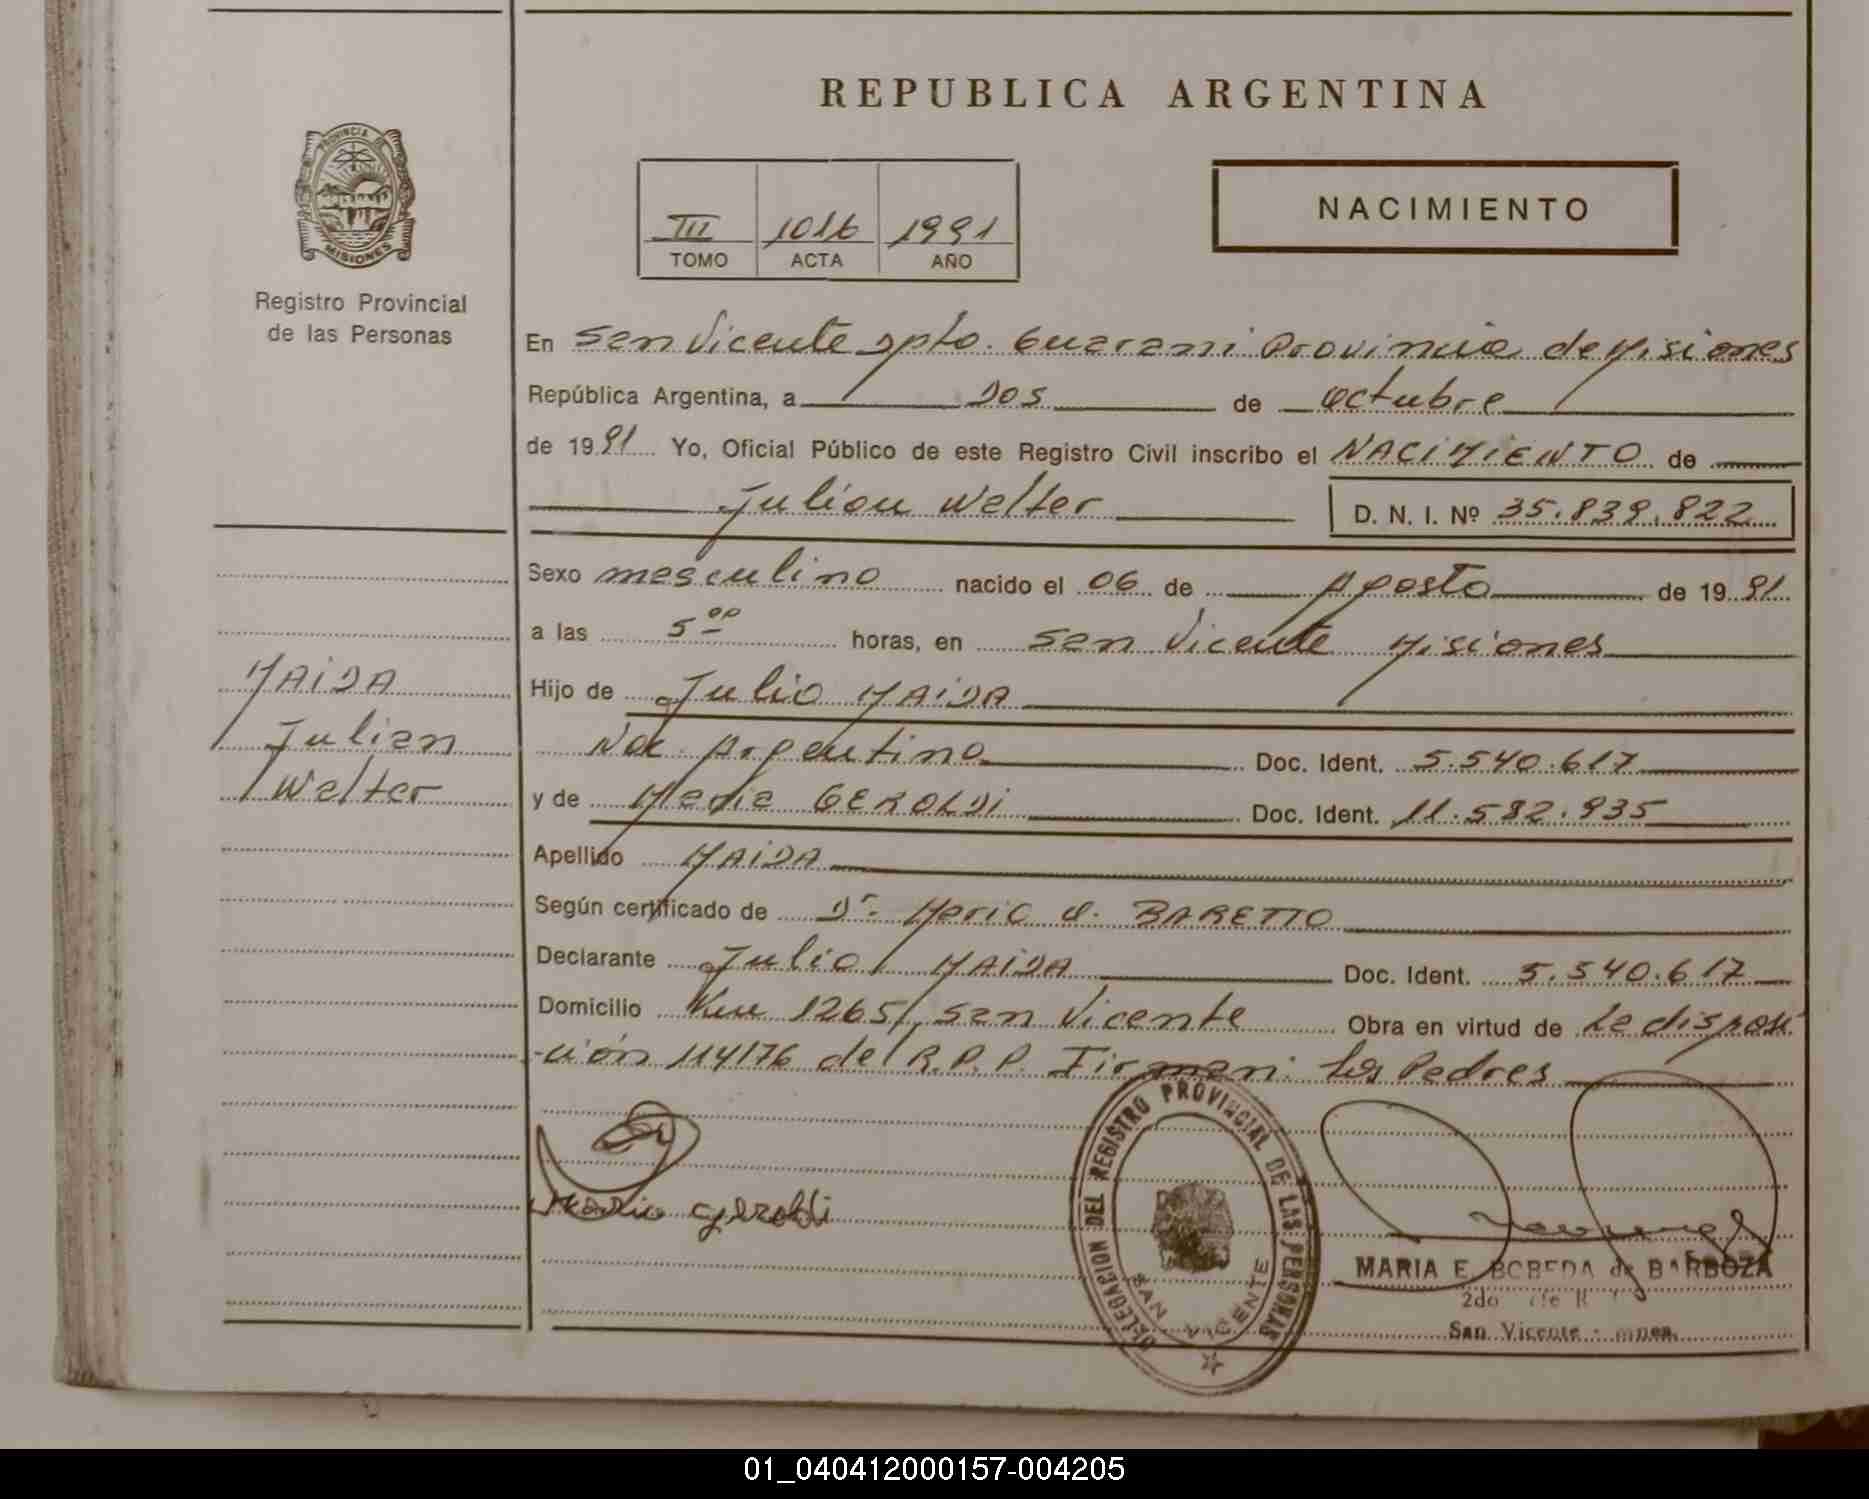 REPUBLICA ARGENTINA
PROVINCIA DE
MISIONES
Registro Provincial
de las Personas
III 1016 1991
TOMO ACTA AÑO
NACIMIENTO
En San Vicente Dpto. Guarani Provincia de Misiones
República Argentina, a Dos de octubre
de 1991 Yo, Oficial Público de este Registro Civil inscribo el NACIMIENTO de
Julian Walter D. N. I. Nº 35.839.822
Sexo masculino nacido el 06 de Agosto de 1991
a las 5 00 horas, en San Vicente Misiones
Hijo de Julio MAIDA
Nac. Argentino Doc. Ident. 5.540.617
y de Maria GEROLDI Doc. Ident. 11.582.935
Apellido MAIDA
Según certificado de Dr. Mario BARETTO
Declarante Julio MAIDA Doc. Ident. 5.540.617
Domicilio Km 1265, San Vicente Obra en virtud de La disposi
-ción 114/76 del R.P.P. Firman: los Padres
MAIDA
Julian
Walter
Maria Geroldi
DELEGACION DEL REGISTRO PROVINCIAL DE LAS PERSONAS
SAN VICENTE
MARIA E. BOBEDA de BARBOZA
2do
San Vicente
01_040412000157-004205